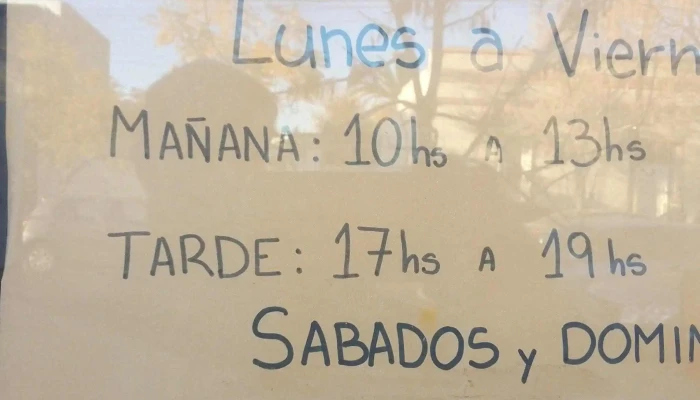 Lunes a Viern
MAÑANA: 10hs A 13hs
TARDE: 17hs A 19hs
SABADOS y DOMIN